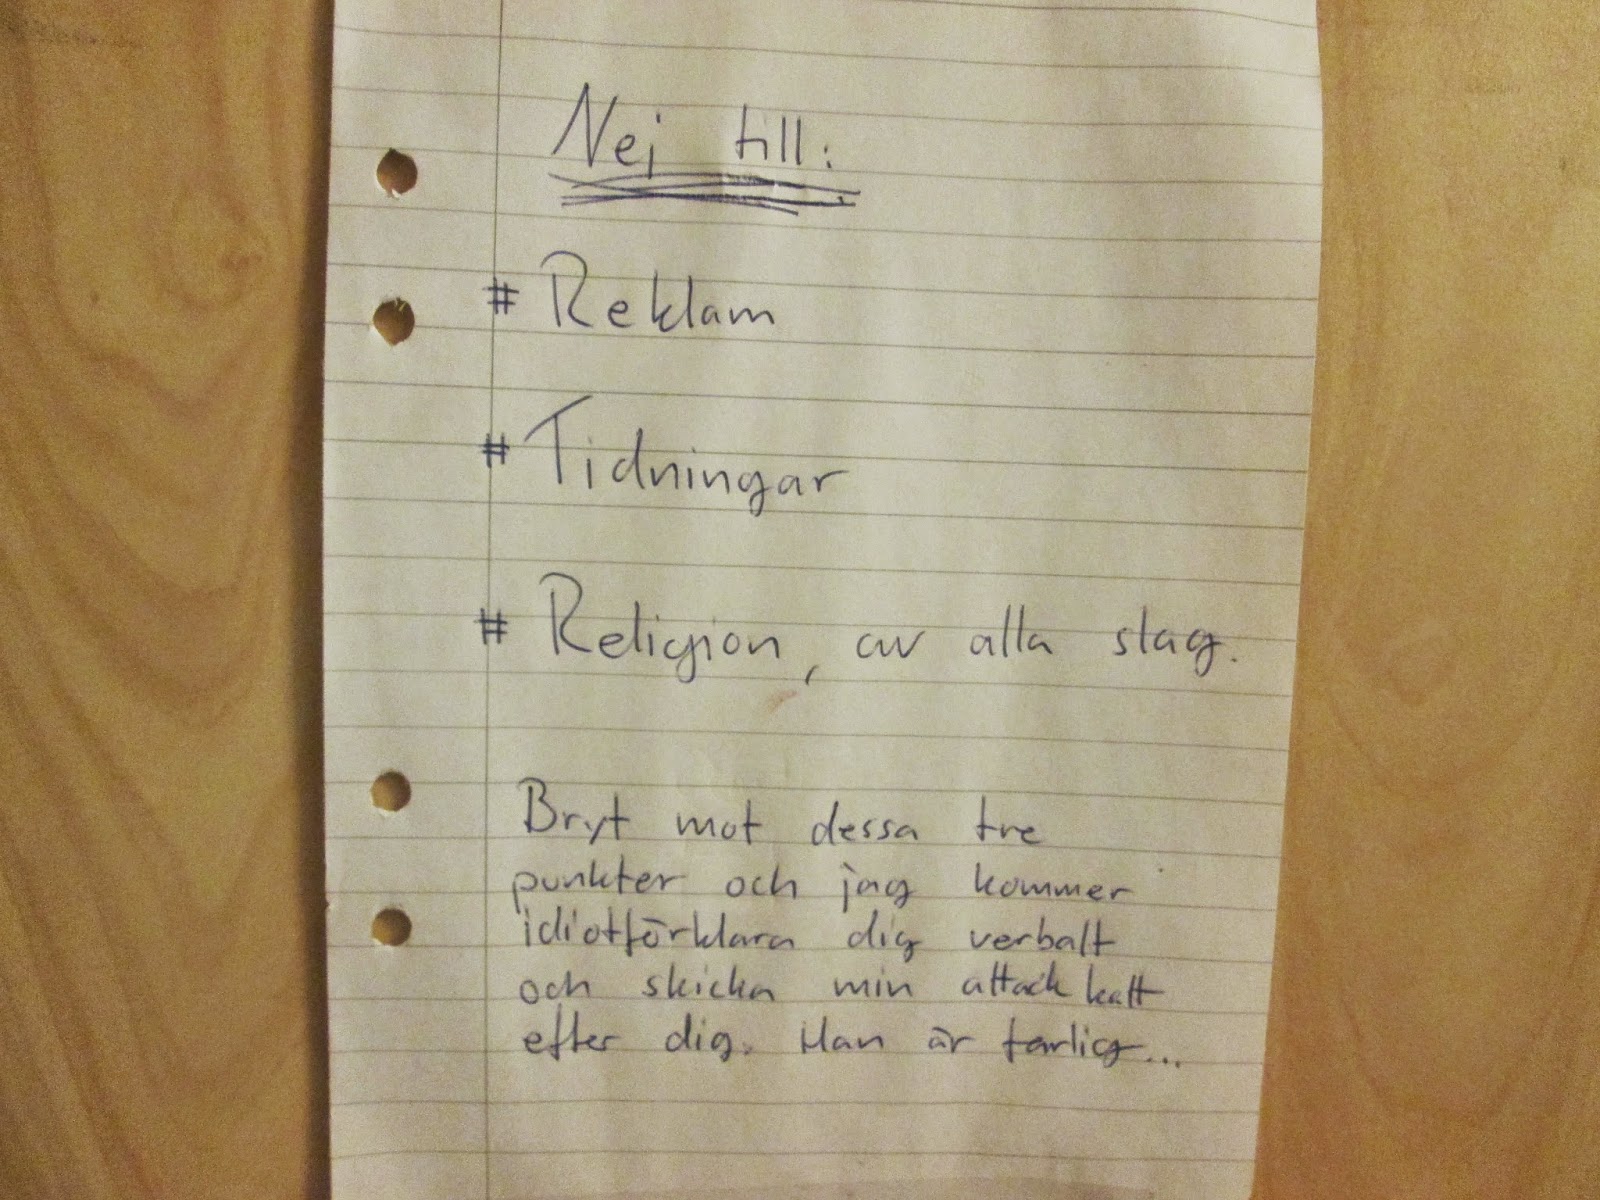 Nej till:
# Reklam
# Tidningar
# Religion, av alla slag.
Bryt mot dessa tre
punkter och jag kommer
idiotförklara dig verbalt
och skicka min attack katt
efter dig. Han är farlig...